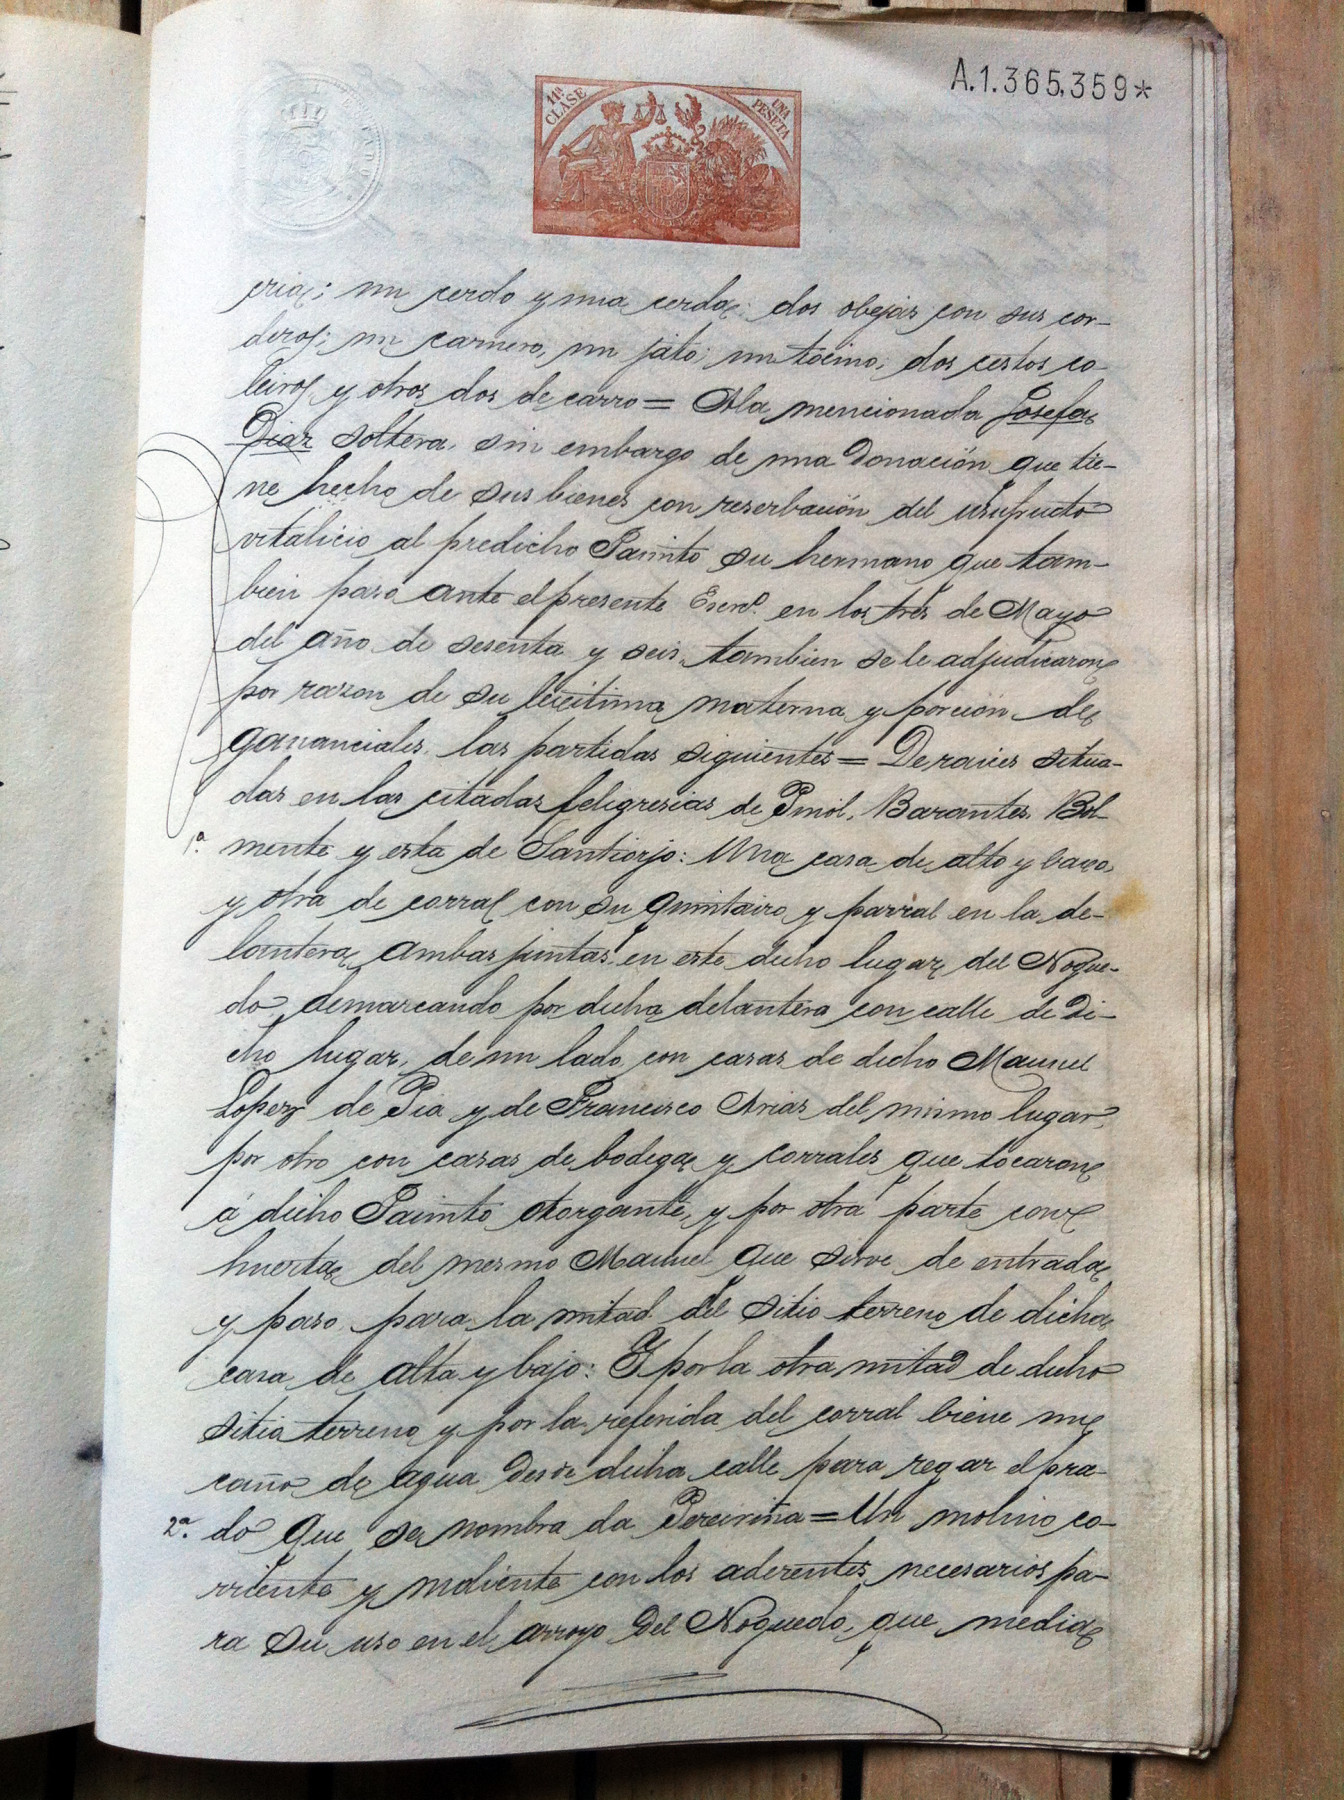 A.1.365.359*
11ª CLASE
UNA PESETA
cria; un cerdo y una cerda; dos obejas con sus cor-
deros; un carnero, un jato; un tocino; dos cestos co-
leiros y otros dos de carro = A la mencionada Josefa
Diaz soltera, sin embargo de una donación que tie-
ne hecho de sus bienes con reserbación del usufructo
vitalicio al predicho Jacinto su hermano que tam-
bien paso ante el presente Escrnº. en los tres de Mayo
del año de sesenta y seis, tambien se le adjudicaron
por razon de su lecitima materna y porción de
gananciales, las partidas siguientes = De raices situa-
das en las citadas feligresias de Pinol, Barantes, Bol-
1ª. mente y esta de Santiorjo: Una casa de alto y baxo,
y otra de corral con su quintairo y parral en la de-
lantera, ambas juntas en este dicho lugar del Nogue-
do demarcando por dicha delantera con calle de di-
cho lugar, de un lado con casas de dicho Manuel
Lopez de Pia y de Francisco Arias del mismo lugar,
por otro con casas de bodega y corrales que tocaron
á dicho Jacinto otorgante, y por otra parte con
huerta del mesmo Manuel que sirve de entrada
y paso para la mitad del sitio terreno de dicha
casa de alta y bajo: Y por la otra mitad de dicho
sitia terreno y por la referida del corral biene un
caño de agua desde dicha calle para regar el pra-
2ª. do que se nombra da Pereiriña = Un molino co-
rriente y moliente con los aderentes necesarios pa-
ra su uso en el arroyo del Noguedo, que media